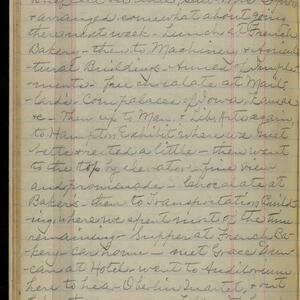 arranged somewhat about going
there next week - Lunch at French
Bakery - then to Machinery & Agricul
tural Buildings - Annex of Imple
ments - free chocolate at Mail
lards - Corn palaces of Iowa, Kansas
& c - Then up to Man. & Lib. Arts again
to Hampton Exhibit where we met
& rested a little - then went
to the top by elevator - fine view
and promenade - Chocolate at
Bakers - then to Transportation Build
ing, where we spent most of the time
remaining - Supper at French Ba-
kery - Car home - met Grace Dun
can at Hotel - went to Auditorium
here to hear Oberlin Quartet, & out